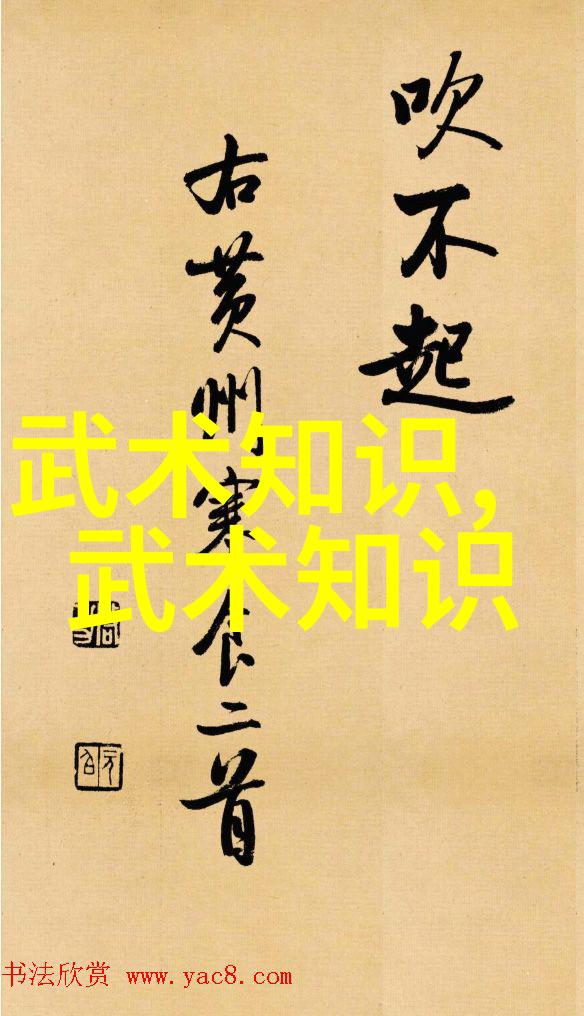 吹不起
右黄州寒食二首
武术知识，
武术知识
书法欣赏 www.yac8.com